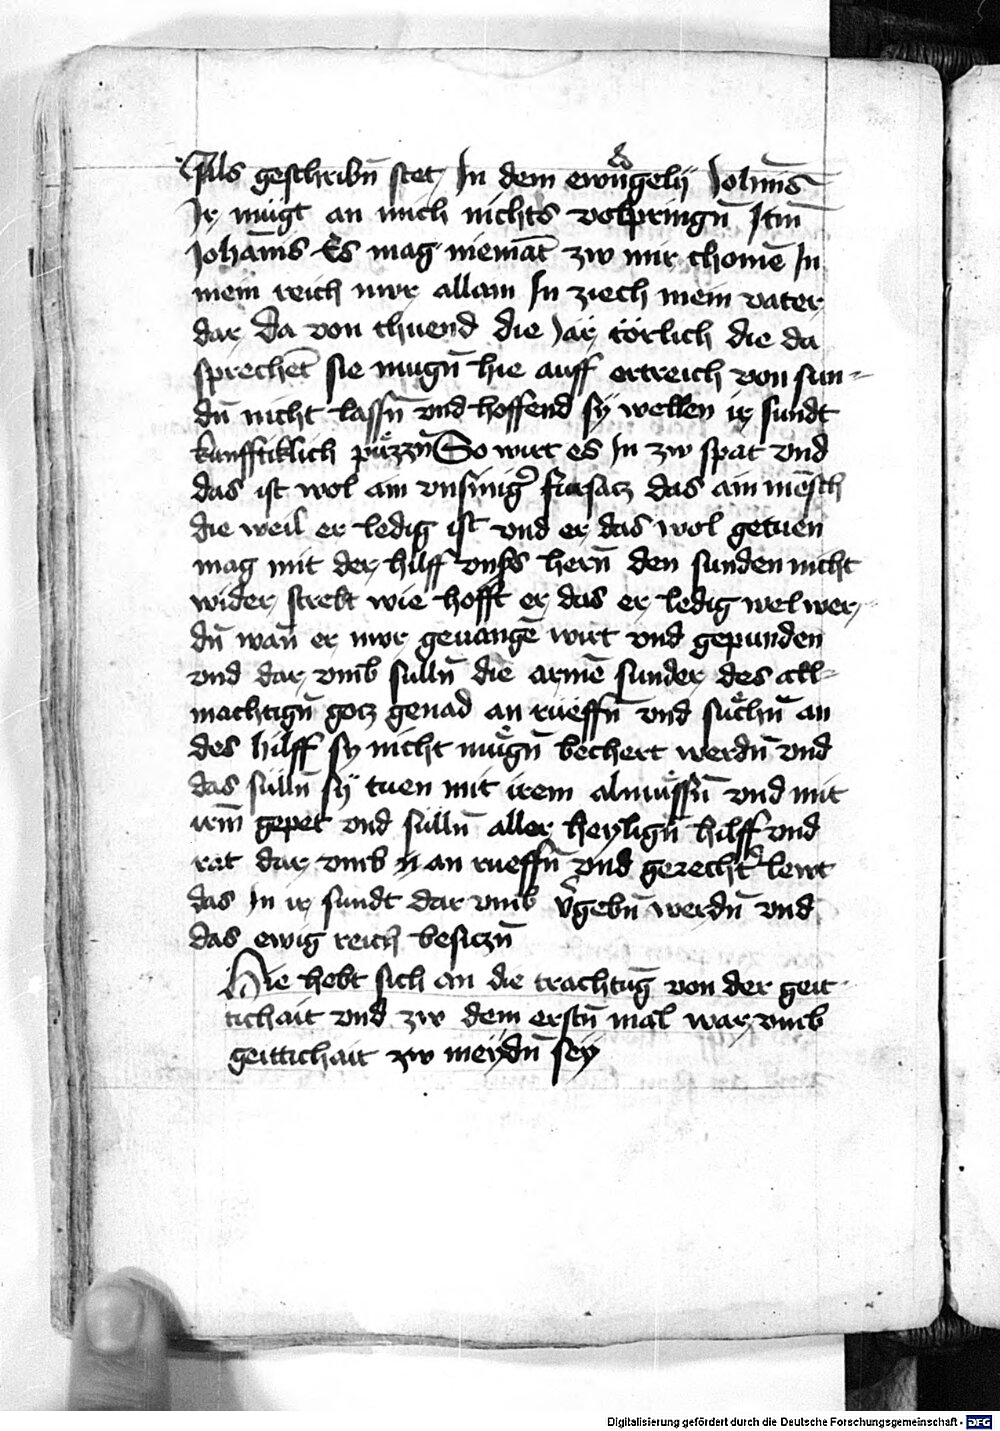 Als geschribn̄ stet In dem ewn̄gelÿ Johan̄is
Ir mügt an mich nichts volpringn̄ Itm̄
Johān̄is Es mag niemāt zw mir chomē In
mein reich nwr allain In ziech mein vater
dar Da von thuend die Jar törlich die da
sprechēt sie mugn̄ hie auff ertreich von sun-
dn̄ nicht lassn̄ vnd hoffend sy wellen ir sundt
kunfftiklich püzzn̄ So wirt es In zw spat vnd
das ist wol ain vnsinig̾ fursacz das ain mēsch
die weil er ledig ist vnd er das wol getuen
mag mit der hilff vnss hern̄ den sunden nicht
wider strebt wie hofft er das er ledig wel wer
dn̄ wan̄ er nwr geuangē wirt vnd gepunden
vnd dar vmb sulln̄ die armē sunder des all-
machtign̄ gotz genad an rüeffn̄ vnd suͤchn̄ an
des hilff sy nicht muͤgn̄ bechert werdn̄ vnd
das sülln̄ sÿ tuen mit irem almuͤssn̄ vnd mit
irm̄ gepet vnd sülln̄ aller heylign̄ hilff vnd
rat dar vmb n an rueffn̄ vnd gerecht̾ lewt
das In ir sundt dar vmb v̾gebn̄ werdn̄ vnd
das ewig reich besiczn̄
Hie hebt sich an die trachtūg von der geit
tichait vnd zw dem erstn̄ mal war vmb
geittichait zw meydn̄ seÿ
Digitalisierung gefördert durch die Deutsche Forschungsgemeinschaft - DFG